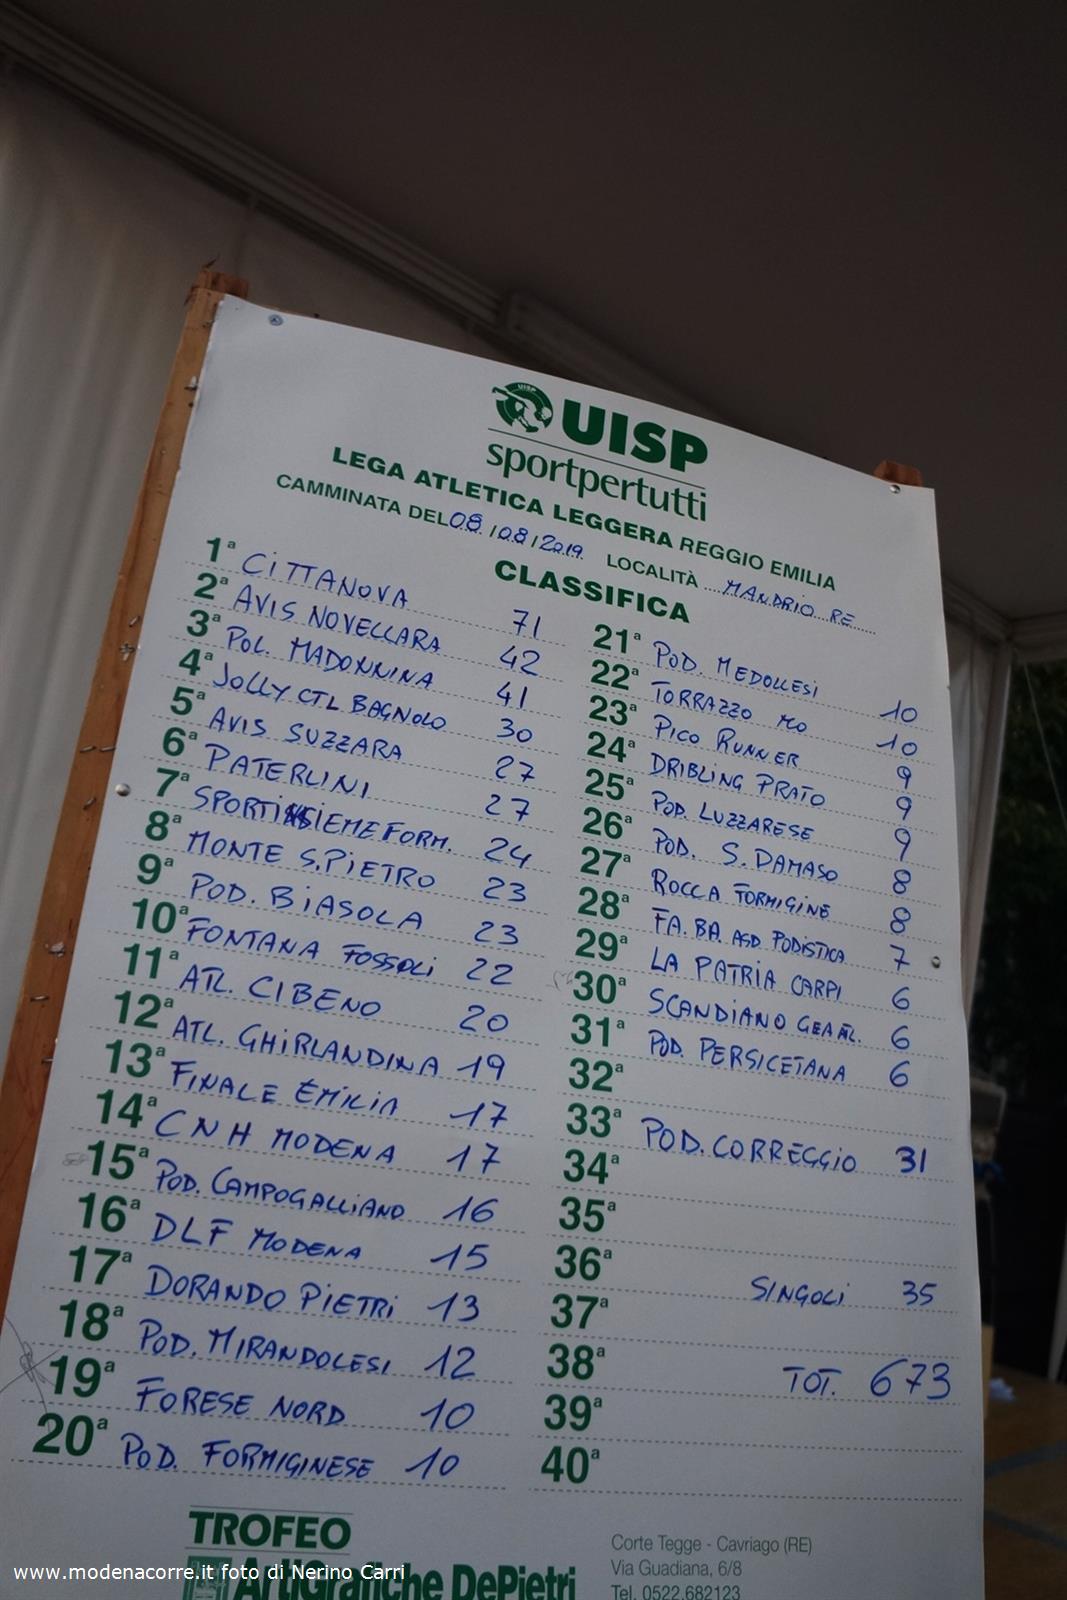 UISP
UISP
sportpertutti
LEGA ATLETICA LEGGERA REGGIO EMILIA
CAMMINATA DEL 08/08/2019 LOCALITÀ MANDRIO RE
CLASSIFICA
1ª CITTANOVA 71
2ª AVIS NOVELLARA 42
3ª POL. MADONNINA 41
4ª JOLLY CTL BAGNOLO 30
5ª AVIS SUZZARA 27
6ª PATERLINI 27
7ª SPORTINSIEME FORM. 24
8ª MONTE S. PIETRO 23
9ª POD. BIASOLA 23
10ª FONTANA FOSSOLI 22
11ª ATL. CIBENO 20
12ª ATL. GHIRLANDINA 19
13ª FINALE EMILIA 17
14ª CNH MODENA 17
15ª POD. CAMPOGALLIANO 16
16ª DLF MODENA 15
17ª DORANDO PIETRI 13
18ª POD. MIRANDOLESI 12
19ª FORESE NORD 10
20ª POD. FORMIGINESE 10
21ª POD. MEDOLLESI 10
22ª TORRAZZO MO 10
23ª PICO RUNNER 9
24ª DRIBLING PRATO 9
25ª POD. LUZZARESE 9
26ª POD. S. DAMASO 8
27ª ROCCA FORMIGINE 8
28ª FA. BA. ASD PODISTICA 7
29ª LA PATRIA CARPI 6
30ª SCANDIANO GEA ATL. 6
31ª POD. PERSICETANA 6
32ª
33ª POD. CORREGGIO 31
34ª
35ª
36ª SINGOLI 35
37ª
38ª TOT. 673
39ª
40ª
TROFEO
ArtiGrafiche DePietri
Corte Tegge - Cavriago (RE)
Via Guadiana, 6/8
Tel. 0522.682123
www.modenacorre.it foto di Nerino Carri